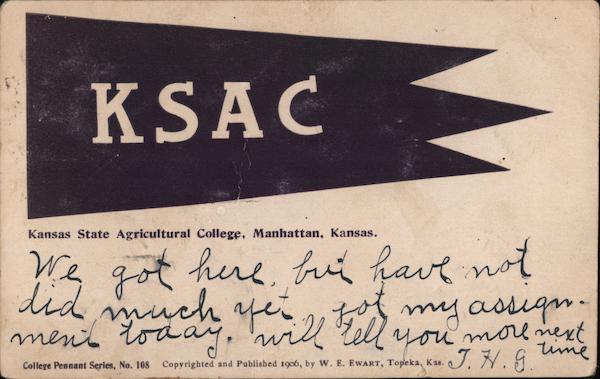 KSAC
Kansas State Agricultural College, Manhattan, Kansas.
We got here, but have not
did much yet. got my assign-
ment today. will tell you more next
time
J. H. G.
College Pennant Series, No. 108 Copyrighted and Published 1906, by W. E. EWART, Topeka, Kas.